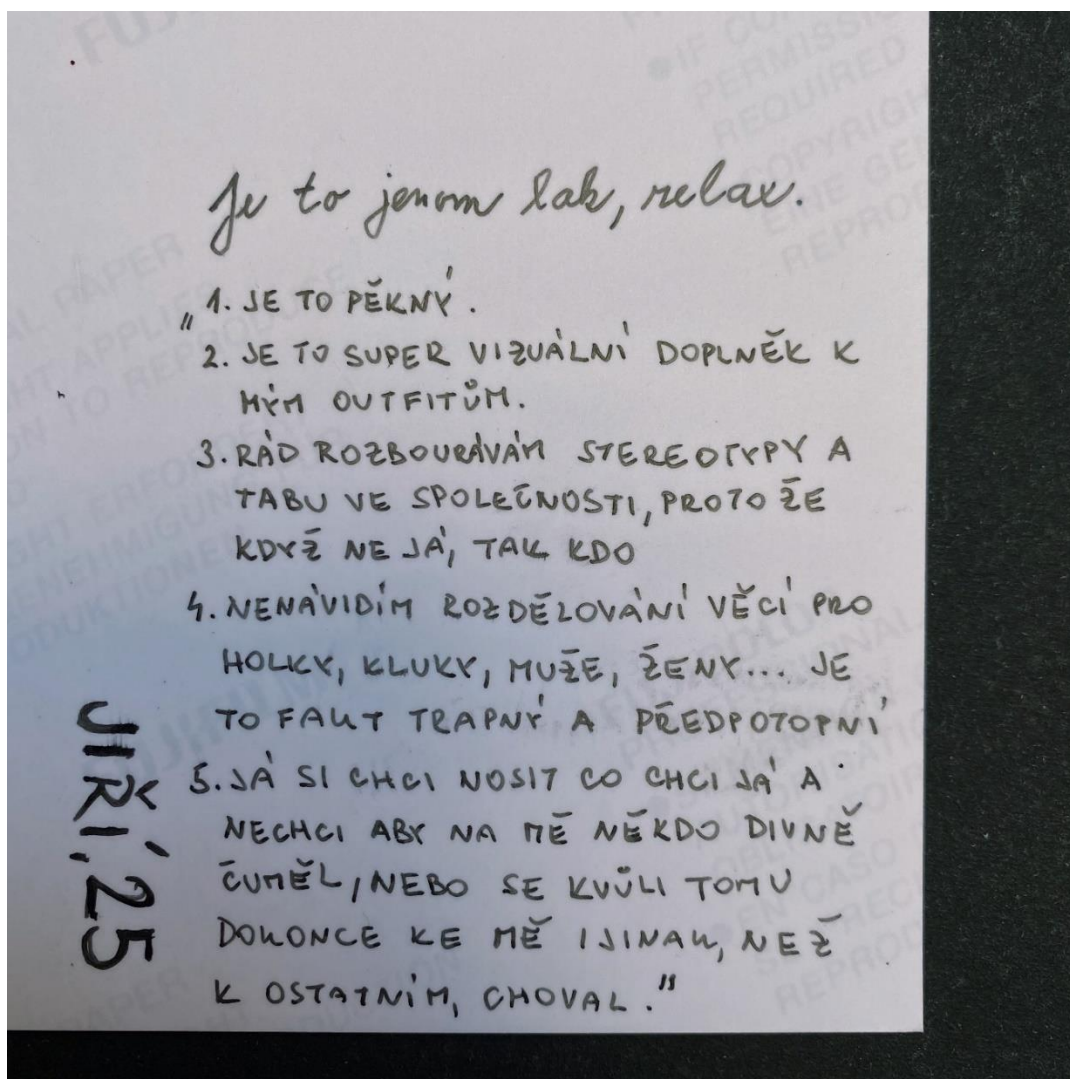 Je to jenom lak, relax.
„1. JE TO PĚKNÝ.
2. JE TO SUPER VIZUÁLNÍ DOPLNĚK K
MÝM OUTFITŮM.
3. RÁD ROZBOURÁVÁM STEREOTYPY A
TABU VE SPOLEČNOSTI, PROTOŽE
KDYŽ NE JÁ, TAK KDO
4. NENÁVIDÍM ROZDĚLOVÁNÍ VĚCÍ PRO
HOLKY, KLUKY, MUŽE, ŽENY... JE
TO FAKT TRAPNÝ A PŘEDPOTOPNÍ
5. JÁ SI CHCI NOSIT CO CHCI JÁ A
NECHCI ABY NA MĚ NĚKDO DIVNĚ
ČUMĚL, NEBO SE KVŮLI TOMU
DOKONCE KE MĚ I JINAK, NEŽ
K OSTATNÍM, CHOVAL."
JIŘÍ, 25